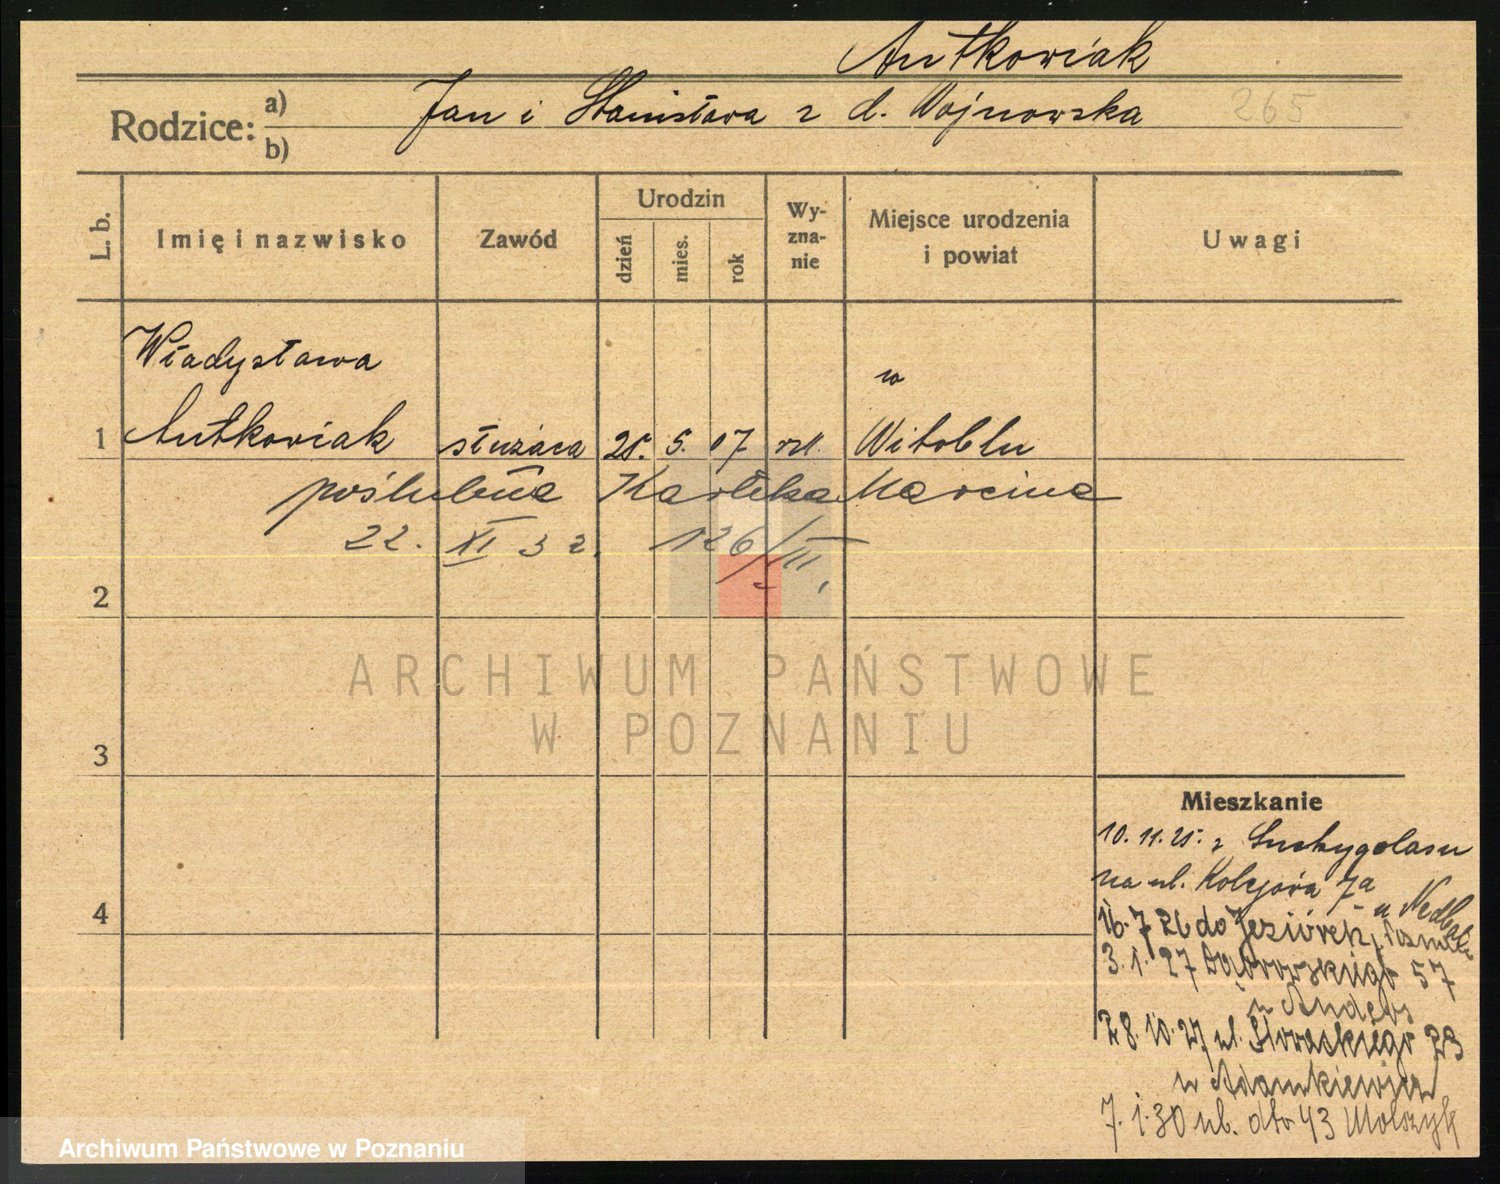 Antkowiak
Rodzice: a) b) Jan i Stanisława z d. Wojnowska 265
L. b. Imię i nazwisko Zawód Urodzin dzień mies. rok Wy-zna-nie Miejsce urodzenia i powiat Uwagi
Władysława w
1 Antkowiak służąca 25. 5. 07 rzk. Witoblu
poślubiła Marcina
22. XI 32. 126/III
2
ARCHIWUM PAŃSTWOWE
W POZNANIU
3
Mieszkanie
10. 11. 25. z Suchygolasu
na ul. Kolejowa 7a
4
16. 7 26 do Jeziorek,
3. 1. 27 Dąbrowskiego 57
u Anders
28. 10. 27 ul. 23
u Adamkiewicz
7. 1. 30 ul. dto 43
Archiwum Państwowe w Poznaniu